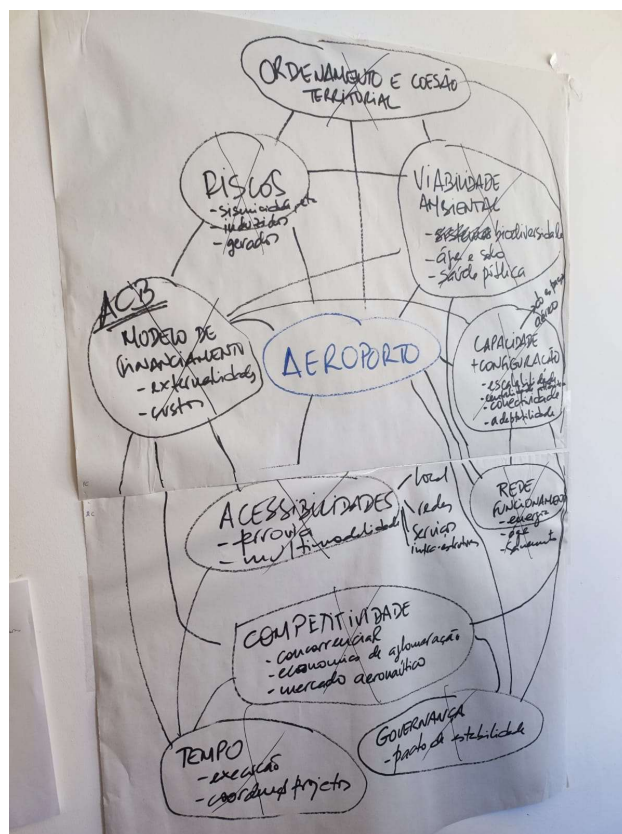 ORDENAMENTO E COESÃO
TERRITORIAL
RISCOS
- induzidos
- gerados
VIABILIDADE
AMBIENTAL
- biodiversidade
- água e solo
- saúde pública
ACB
MODELO DE
FINANCIAMENTO
- externalidades
- custos
AEROPORTO
CAPACIDADE
+ CONFIGURAÇÃO
- conectividade
- adaptabilidade
ACESSIBILIDADES
- ferrovia
- multimodalidade
local
redes
serviço
infra-estrutura
REDE
FUNCIONAMENTO
- energia
- água
- saneamento
COMPETITIVIDADE
- concorrencial
- economias de aglomeração
- mercado aeronáutico
TEMPO
- execução
- projetos
GOVERNANÇA
- pacto de estabilidade